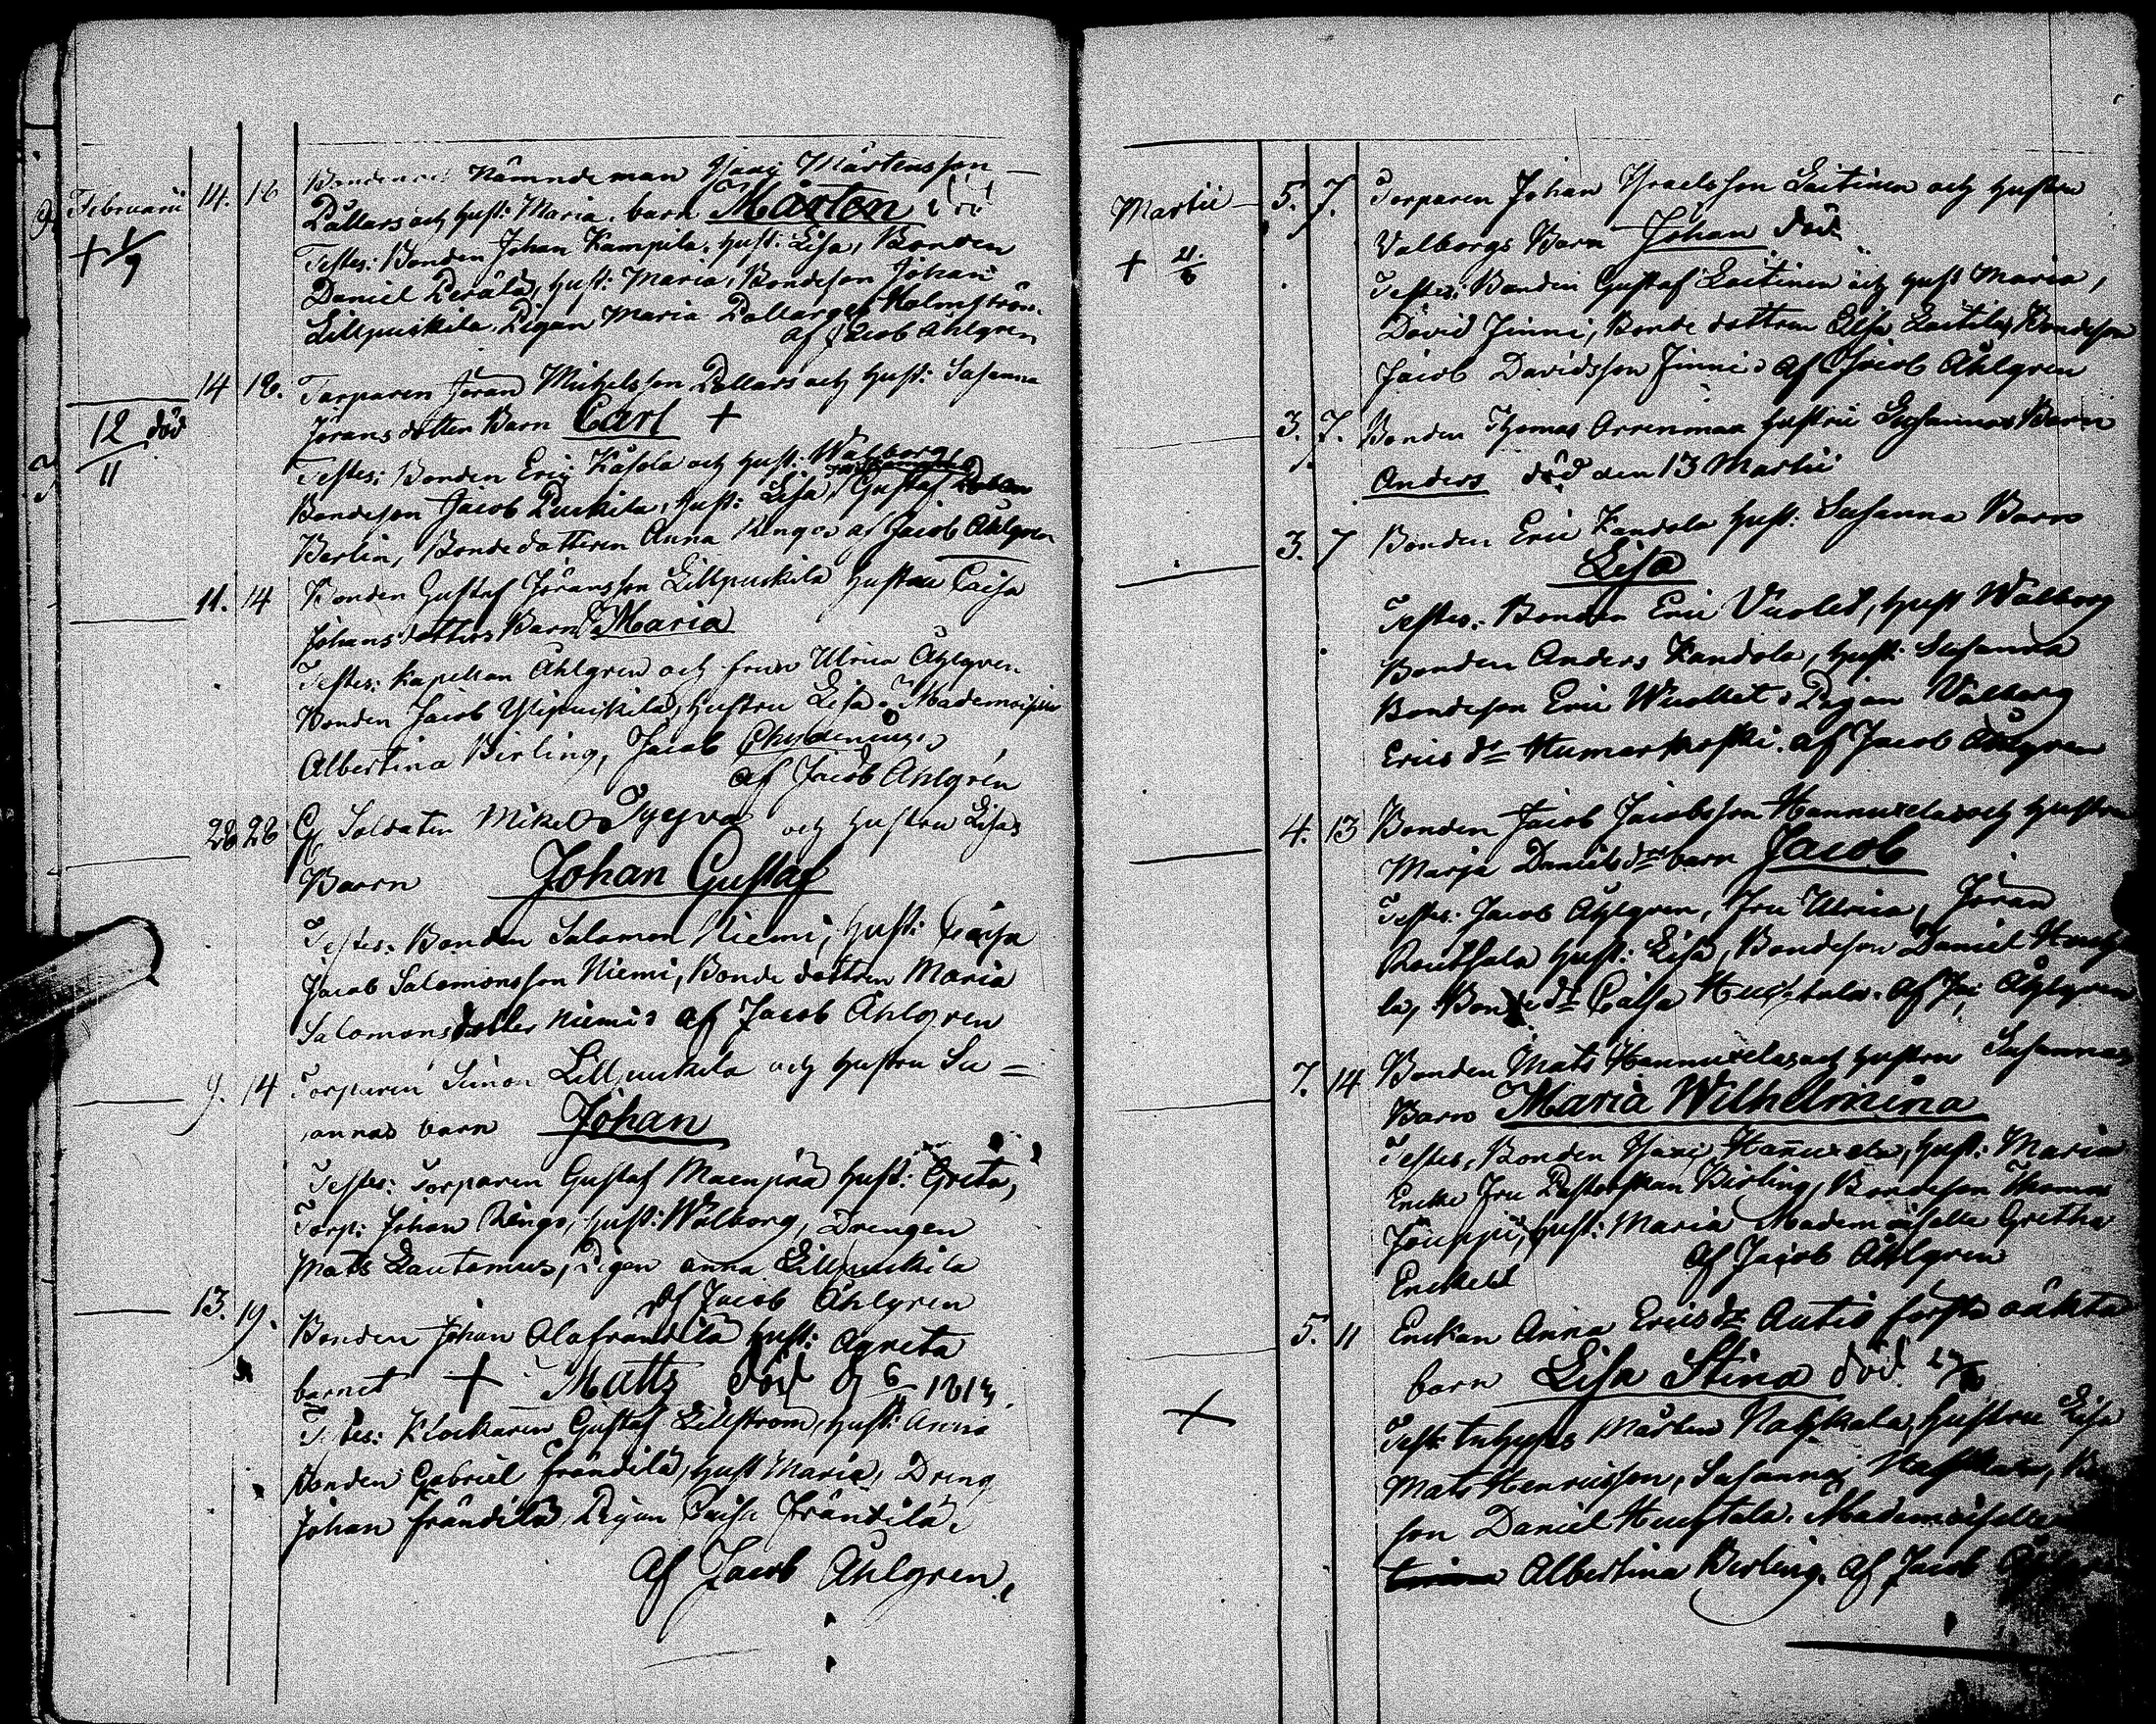 Februarii 14. 16 Bonden och Nämndeman Isaac Mårtensson
Pållars och hust: Maria. barn Mårten död
+ 1/9
Testes: Bonden Johan Kampila, hust. Lisa, Bonden
Daniel Perälä, hust: Maria, Bondeson Johan
Lillpuikkila, Pigan Maria Pållargest Holmström.
af Jacob Åhlgren
14 18. Torparen Jöran Michelsson Pållars och hust: Susanna
12/11 död
Jöransdotter Barn Carl +
Testes: Bonden Eric Käsola och hust: Walborg
Bondeson Jacob Puikkila, hust: Lisa, Gustaf
Berlin, Bondedotteren Anna Ringo af Jacob Åhlgren
11. 14 Bonden Gustaf Jöransson Lillpuikkila hustru Caisa
Johansdotters Barn Maria
Testes: Kapellan Åhlgren och frun Ulrica Åhlgren
Bonden Jacob Ylipuikkila, hustru Lisa. Mademoiselle
Albertina Birling, Jacob Chydenius.
af Jacob Åhlgren
28 28 Soldaten Mikel och hustru Lisas
Barn Johan Gustaf
Testes: Bonden Salomon Niemi, hust: Caisa
Jacob Salomonsson Niemi, Bonde dottren Maria
Salomonsdotter Niemi. af Jacob Åhlgren
9. 14 Torparen Simon Lillpuikkila och hustru Su=
annas barn Johan
Testes: Torparen Gustaf Maenpää hust: Greta,
Torp: Johan Ringo, hust: Walborg, Drengen
Mats Lautamus, Pigan Anna Lillpuikkila
af Jacob Åhlgren
13. 19. Bonden Johan Alafräntilä hust: Agneta
barnet + Matts död d 6/11 1813.
Testes: Klockaren Gustaf Lillström, hust: Anna
Bonden Gabriel Fräntilä, hust Maria, Dreng
Johan Fräntilä Pigan Caisa Fräntilä.
Af Jacob Åhlgren.
Martii 5. 7. Torparen Johan Israelsson Laitinen och hustru
Valborgs Barn Johan död
+ 21/6
Testes: Bonden Gustaf Laitinen och hust Maria,
David Jinni, Bonde dottren Lisa Laitila, Bondeson
Jacob Davidsson Jinni. af Jacob Åhlgren
3. 7. Bonden Thomas Orrenmaa hustru Susannas Barn
Anders död den 13 Martii
3. 7 Bonden Eric Kandola hust: Susanna Barn
Lisa
Testes: Bonden Eric Vuolet, hust Walborg
Bonden Anders Kandola, hust: Susanna
Bondeson Eric Wuollet. Pigan Walborg
Erics dr Humarkoski. af Jacob Åhlgren
4. 13 Bonden Jacob Jacobsson Hannuxela och hustru
Marja Daniels drs barn Jacob
Testes: Jacob Åhlgren, Fru Ulrica, Jöran
Routsala hust: Lisa, Bondeson Daniel Huuhta
la, Bonde dr Caisa Huuhtala. af Jac Åhlgren
7. 14 Bonden Mats Hannuxela och hustru Susannas
Barn Maria Wilhelmina
Testes: Bonden Isaac Hannuxela, hust: Maria
Enke Fru Pastorskan Birling, Bondeson Thomas
Jouppi, hust: Maria Mademoiselle Gretha
Enckell af Jacob Åhlgren
5. 11 Enkan Anna Erics dr Autio förste oäkta
barn Lisa Stina död
+
Test: Inhyses Mårten Nassala, hustru Lisa
Mats Henricsson, Susanna
son Daniel Huuhtala. Mademoiselle
Albertina Birling. af Jacob Åhlgren